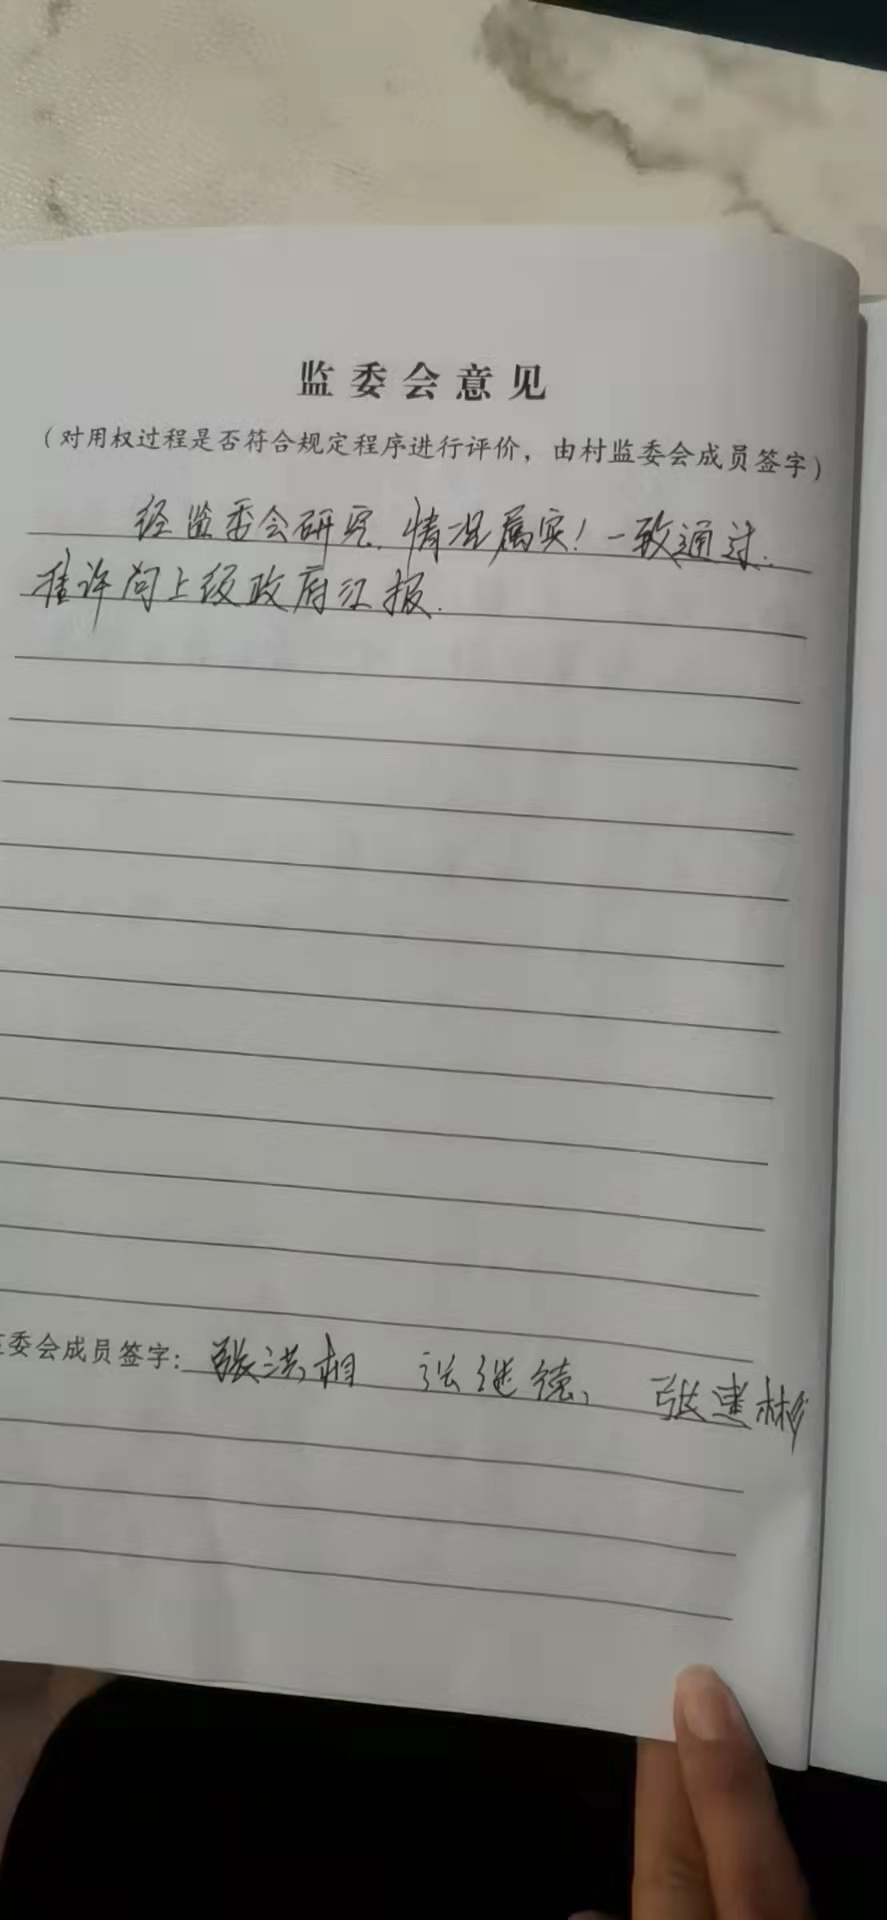 监委会意见
（对用权过程是否符合规定程序进行评价，由村监委会成员签字）
经监委会研究,情况属实！一致通过.
准许向上级政府汇报.
监委会成员签字：张洪相 张继德、张建彬